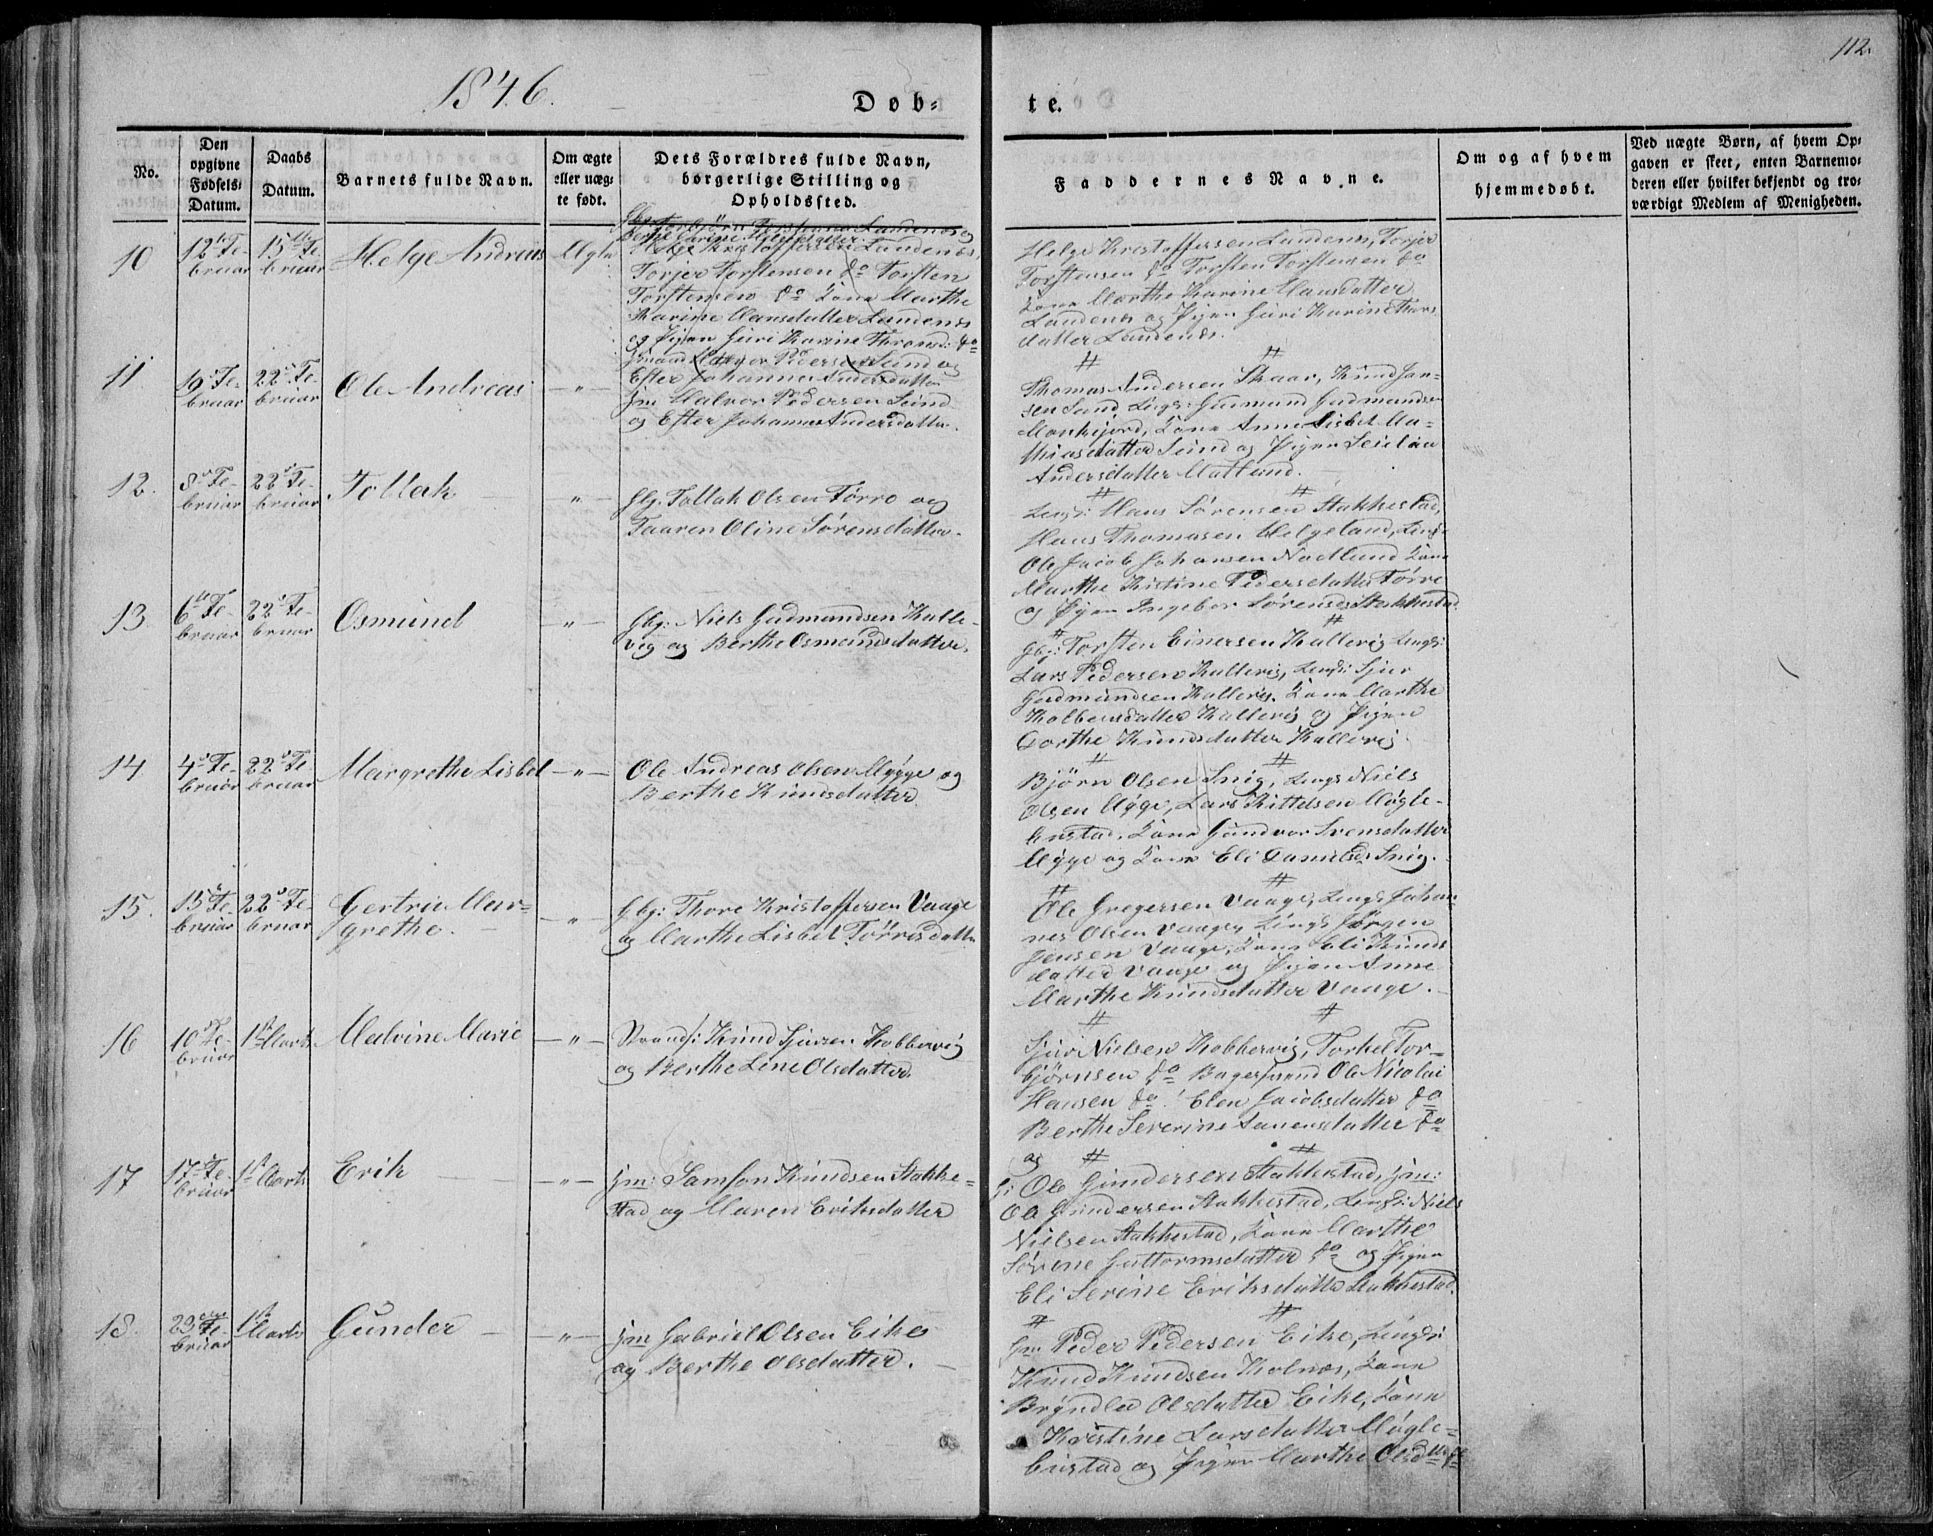 1846.
Døb-
te.
112.
No.
Den opgivne Fødsels-Datum.
Daabs Datum.
Barnets fulde Navn.
Om ægte eller uæg-te født.
Dets Forældres fulde Navn, borgerlige Stilling og Opholdssted.
Faddernes Navne.
Om og af hvem hjemmedøbt.
Ved uægte Børn, af hvem Op-
gaven er skeet, enten Barnemo-
deren eller hvilket bekjendt og tro-
værdigt Medlem af Menigheden.
10
12te Fe-
bruar
15de Fe-
bruar
Helge Andreas
Helge Kristoffersen Landenæs,
Torjer Torstensen do Torsten
Torstensen do Kone Marthe
Karine Hansdatter Landenæs
og Pigen Guri Karine
Helge Kristoffersen Landenæs, Torjer
Torstensen do Torsten Torstensen do
Kone Marthe Karine Hansdatter
Landenæs og Pigen Guri Karine
datter Landenæs.
11
19de Fe-
bruar
22de Fe-
bruar
Ole Andreas
-"-
Halvor Pedersen Sund og
Ester Johanna Andersdatter
jm Halvor Pedersen Sund
og Ester Johanna Andersdatter.
# #
Thomas Andersen Skaar, Knud Jan-
sen Sund, Ungk: Gudmund Gudmundsen
Kone Anne Lisbet Ma-
thiasdatter Sund og Pigen
Andersdatter
12.
8de Fe-
bruar
22de Fe-
bruar
Tollak
-"-
Gbr. Tollak Olsen Førre og
Maren Oline Sørensdatter.
# #
Ungk: Hans Sørensen Stakkestad,
Hans Thomasen Helgeland, Ungk:
Ole Jacob Johansen Kone
Marthe Kistine Pedersdatter Førre
og Pigen Ingebor Sørensd. Stakkestad
13
6te Fe-
bruar
22de Fe-
bruar
Osmund
-"-
Gbr: Niels Gudmundsen Kalle-
vig og Berthe Osmundsdatter.
# #
Gbr: Torsten Einersen Kallevig Ungk:
Lars Pedersen Kallevig, Ungk: Sjur
Gudmundsen Kallevig. Kone Marthe
Kolbensdatter Kallevig og Pigen
Dorthe Knudsdatter Kallevig.
14
4de Fe-
bruar
22de Fe-
bruar
Margrethe Lisbet
-"-
Ole Andreas Olsen Mygge og
Berthe Knudsdatter
# #
Bjørn Olsen Snig, Ungk Niels
Olsen Mygge, Lars Kittelsen Møgle-
bustad, Kone Gundvor Svensdatter
Mygge og Kone Eli Danielsd: Snig.
15.
15de Fe-
bruar
22de Fe-
bruar
Gertrie Mar-
grethe.
-"-
Gbr: Thore Kristoffersen Vaage
og Marthe Lisbet Tørresdatter
# #
Ole Gregersen Vaage, Ungk: Johan-
nes Olsen Vaage, Ungk Jørgen
Jensen Vaage, Kone Eli Knuds
datter Vaage og Pigen Anne
Marthe Knudsdatter Vaage.
16
10de Fe-
bruar
1ste Marts
Malvine Marie
-"-
Strands: Knud Sjursen Kobbervig
og Berthe Line Olsdatter.
# #
Sjur Nielsen Kobbervig, Torkel Tor-
bjørnsen do Bagersvend Ole Nicolai
Hansen do Elen Jacobsdatter do
Berthe Severine Janensdatter do
17
17de Fe-
bruar
1ste Marts
Erik
-"-
jm: Samson Knudsen Stakke-
stad og Maren Eriksdatter
og # #
G: Ole Gundersen Stakkestad, jm:
Ole Gundersen Stakkestad, Ungk: Niels
Nielsen Stakkestad, Kone Marthe
Sørine Guttormsdatter do og Pigen
Eli Serine Eriksdatter Stakkestad.
18.
23de Fe-
bruar
1ste Marts
Gunder
-"-
jm Gabriel Olsen Eike
og Berthe Olsdatter.
# #
jm Peder Pedersen Eike, Ungk:
Knud Knudsen Kolnæs, Kone
Brynlev Olsdatter Eike, Kone
Kristine Larsdatter Møgle-
bustad og Pigen Marthe Olsdtr do